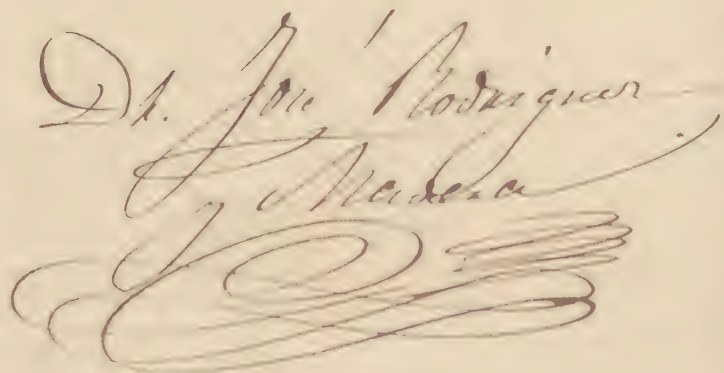 Dr. José Rodriguez
y Madera